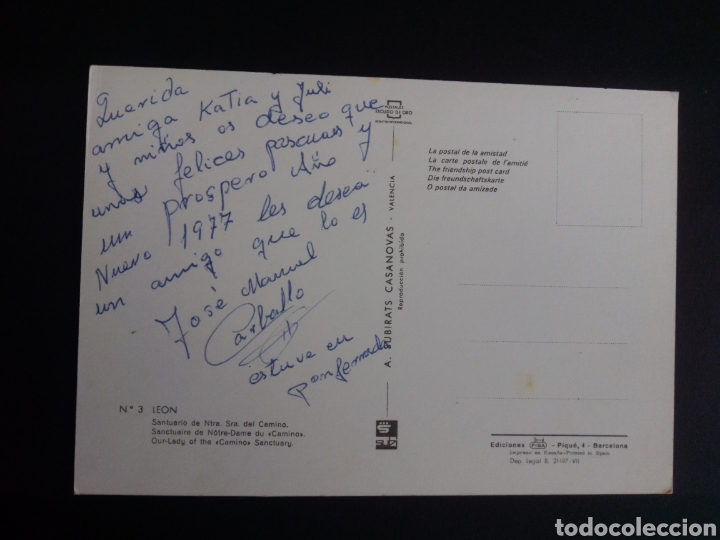 Querida
amiga Katia y Juli
y niños os deseo que
unas felices pascuas y
un prospero Año
Nuevo 1977 les desea
un amigo que lo es
José Manuel
Carballo
estuve en
ponferrada
N.º 3 LEON
Santuario de Ntra. Sra. del Camino.
Sanctuaire de Nôtre-Dame du «Camino».
Our-Lady of the «Camino» Sanctuary.
A. SUBIRATS CASANOVAS - VALENCIA
Reproducción prohibida
La postal de la amistad
La carte postale de l'amitié
The friendship post card
Die freundschaftskarte
O postal da amizade
Ediciones FISA - Piqué, 4 - Barcelona
Impreso en España-Printed in Spain
Dep. Legal B. 21197-VII
todocoleccion